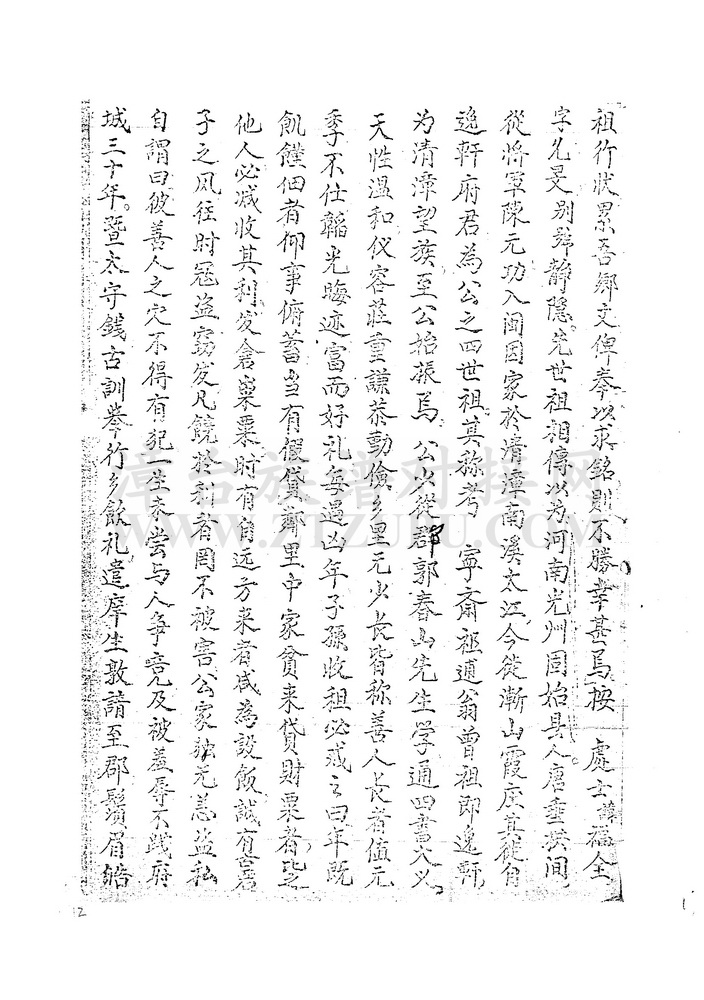 祖行狀累吾鄉文俾奉以求銘則不勝幸甚焉按　處士諱福全
字允旻别號靜隱先世祖相傳以為河南光州固始县人唐垂拱间
從將軍陳元功入闽因家於清漳南溪太江今徙漸山霞庄其徙自
逸軒府君為公之四世祖其称考　寧斋祖適翁曾祖即逸軒
为清漳望族至公始振焉　公少從郡郭春山先生学通四書大义
天性温和仪容莊重謙恭勤儉乡里无少长皆称善人长者值元
季不仕韜光晦迹富而好礼每遇凶年子孫收租必戒之曰年既
飢饉佃者仰事俯蓄当有假貸鄰里中家貧来貸財粟者
他人必减收其利发倉粟時有自远方来者咸為設飯誠有長者
子之风往时冠盗窃发凡饒於利者罔不被害公家独无恙盗私
自謂曰彼善人之穴不得有犯一生未尝与人争竞及被羞辱不践府
城三十年暨太守錢古訓举行乡飲礼遣庠生敦請至郡鬚眉皓
漳台族谱对接网
WWW.ZTZUPU.COM
12
1